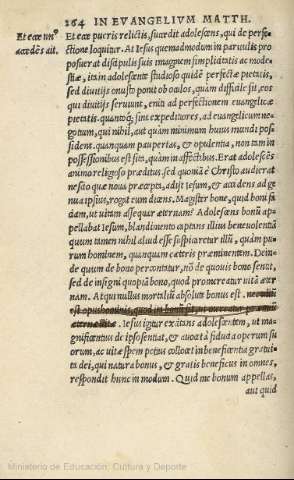 264 IN EVANGELIVM MATTH.
Et ecce unus
accedēs ait.
Et ecce pueris relictis, succedit adolescens, qui de perfe-
ctione loquitur. At Iesus quemadmodum in paruulis pro
posuerat discipulis suis imaginem simplicitatis ac mode-
stiæ, ita in adolescente studioso quidē perfectæ pietatis,
sed diuitijs onusto ponit ob oculos, quàm difficile sit, eos
qui diuitijs seruiunt, eniti ad perfectionem euangelicæ
pietatis. quantoq́; sint expeditiores, ad euangelicum ne-
gotium, qui nihil, aut quàm minimum huius mundi possi
sident. quanquam paupertas, & opulentia, non tam in
possessionibus est sita, quàm in affectibus. Erat adolescēs
animo religioso præditus, sed quoniā è Christo audierat
nescio quæ noua præcepta, adijt Iesum, & accedens ad ge
nua ipsius, rogat eum dicens. Magister bone, quid boni fa
ciam, ut uitam assequar æternam? Adolescens bonū ap-
pellabat Iesum, blandimento captans illius beneuolentiā
quum tamen nihil aliud esse suspicaretur illū, quàm pu-
rum hominem, quanquam cæteris præeminentem. Dein-
de quum de bono percontatur, nō de quouis bono sentit,
sed de insigni quopiā bono, quod promereatur uitā æter
nam. Atqui nullus mortaliū absolutè bonus est.
est opus hominis, quod in
Iesus igitur excitans adolescentem, ut ma-
gnificentius de ipso sentiat, & auocet à fiducia operum su
orum, ac uitæ spem potius collocet in beneficentia gratui-
ta dei, qui natura bonus, & gratis beneficus in omnes,
respondit hunc in modum. Quid me bonum appellas,
aut quid
Ministerio de Educación, Cultura y Deporte